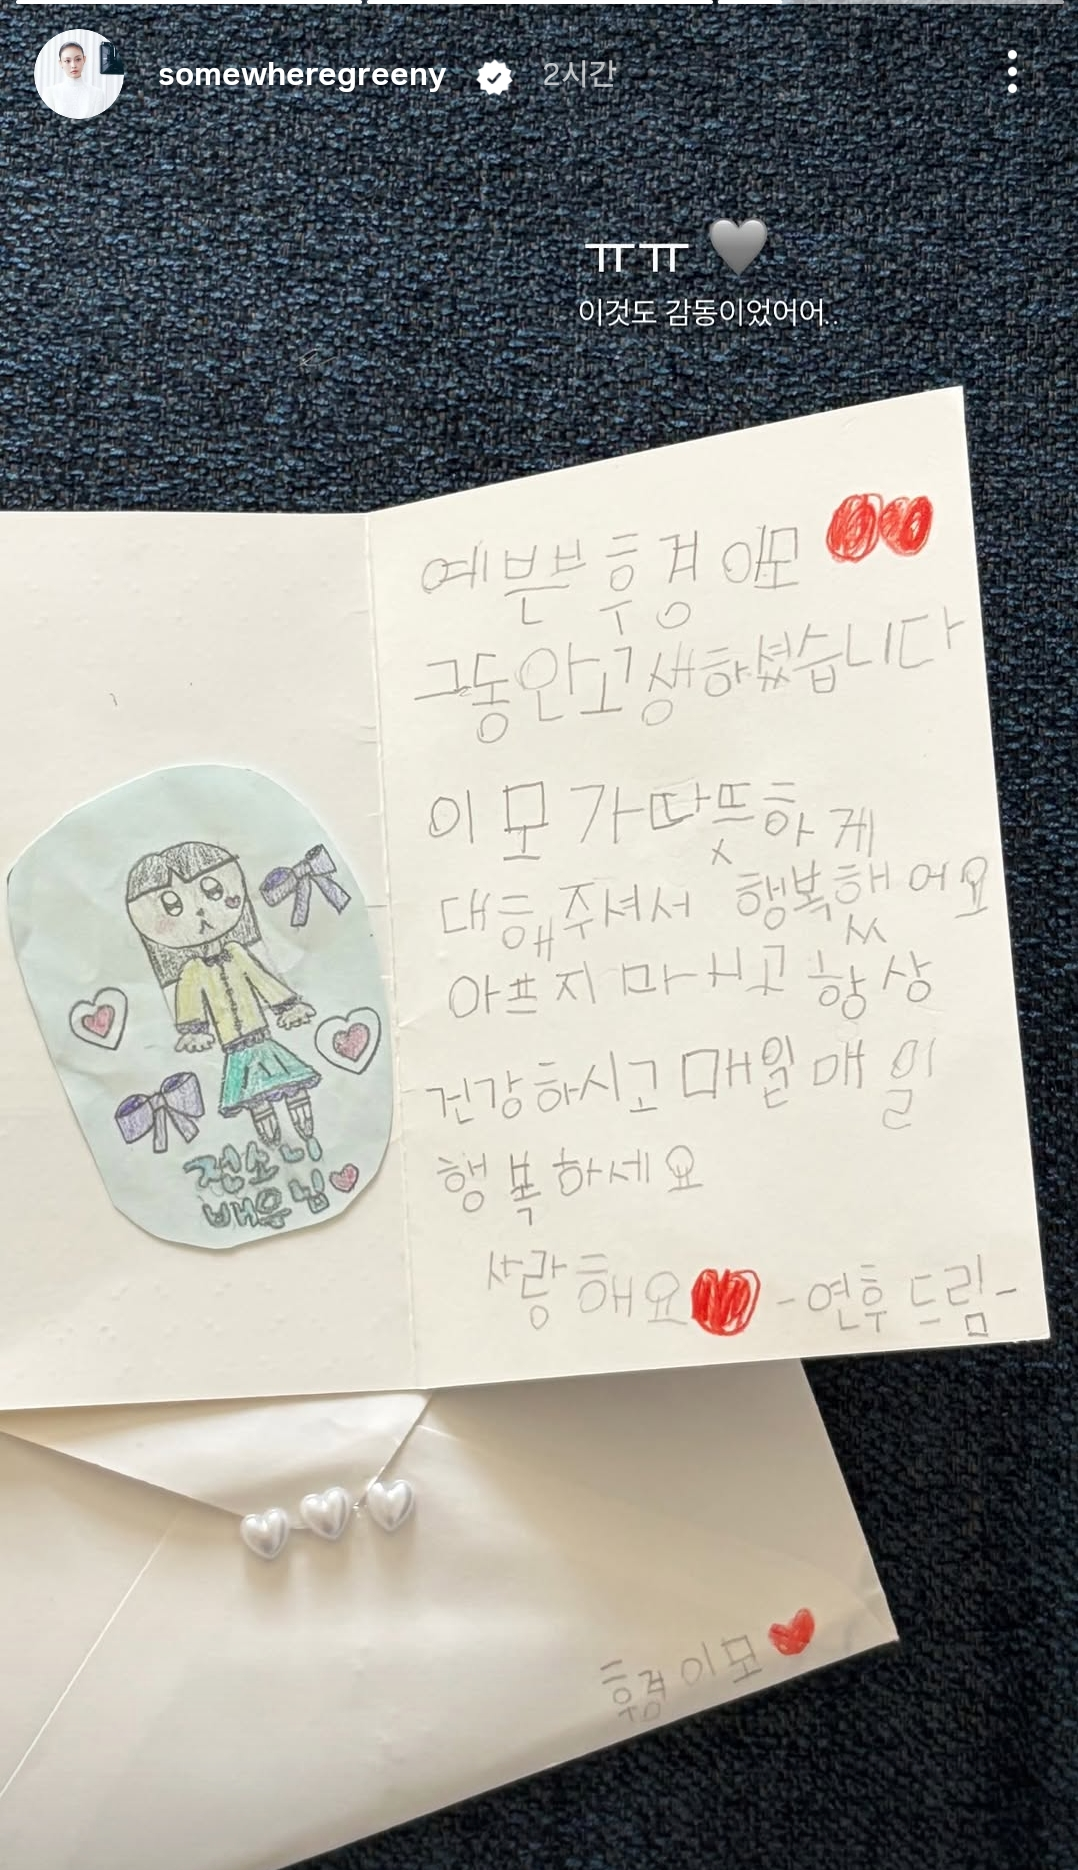 somewheregreeny 2시간
ㅠㅠ 🩶
이것도 감동이었어어..
예쁜 흥경 이모
그동안고생하셨습니다
이모가따뜻하게
대해주셔서 행복했어요
아프지마시고 항상
건강하시고 매일매일
행복하세요
사랑해요 -연후 드림-
전소니
배우님
흥경이모